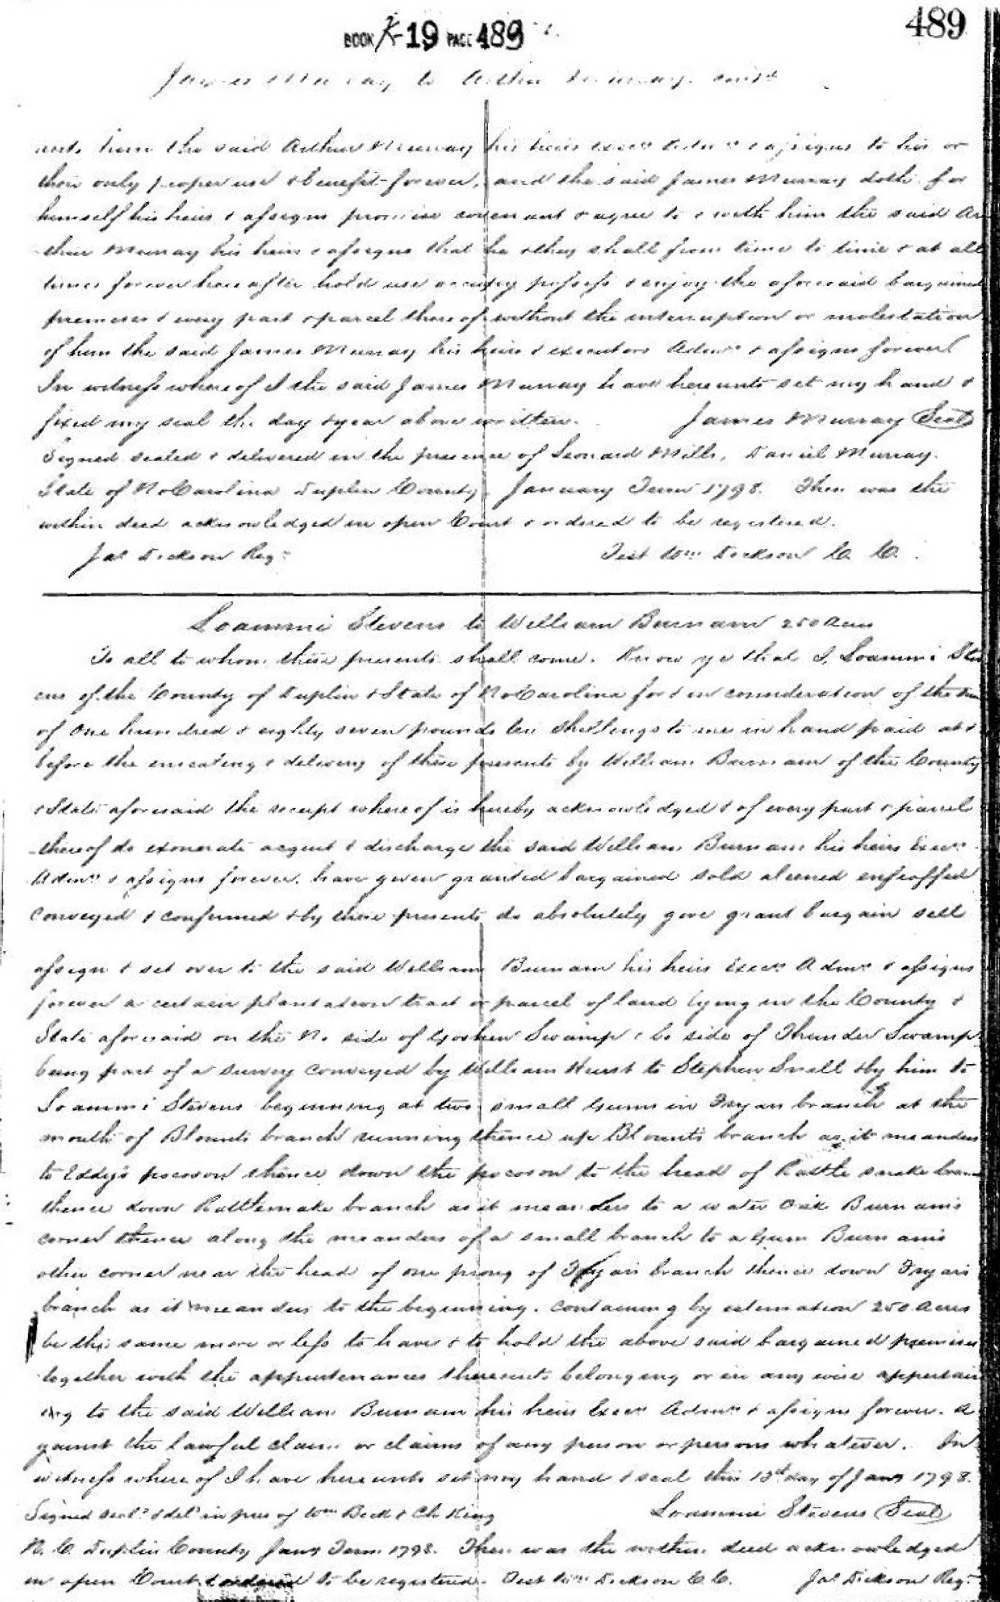 489
BOOK K-19 PAGE 489
James Murray to Arthur Murray
unto him the said Arthur Murray his heirs Execrs Admrs & assigns to his or
their only proper use & benefit forever, and the said James Murray doth for
himself his heirs & assigns promise covenant & agree to & with him the said Ar
thur Murray his heirs & assigns that he & they shall from time to time & at all
times forever hereafter hold use occupy possess & enjoy the aforesaid bargained
premises & every part & parcel thereof without the interruption or molestation
of him the said James Murray his heirs & executors Admrs & assigns forever
In witness whereof I the said James Murray have hereunto set my hand &
fixed my seal the day & year above written. James Murray Seal
Signed sealed & delivered in the presence of Leonard Mills, Daniel Murray.
State of No Carolina Duplin County January Term 1798. Then was the
within deed acknowledged in open Court & ordered to be registered.
Jas Dickson Regr Test Wm Dickson C. C.
Loammi Stevens to William Burnam 250 Acres
To all to whom these presents shall come. Know ye that I, Loammi Ste
ens of the County of Duplin & State of No Carolina for & in consideration of the sum
of One hundred & eighty seven pounds ten shillings to me in hand paid at &
before the ensealing & delivery of these presents by William Burnam of the County
& State aforesaid the receipt whereof is hereby acknowledged & of every part & parcel
thereof do exonerate acquit & discharge the said William Burnam his heirs Execrs
Admrs & assigns forever. have given granted bargained sold aliened enfeoffed
conveyed & confirmed & by these presents do absolutely give grant bargain sell
assign & set over to the said William Burnam his heirs Execrs Admrs & assigns
forever a certain plantation tract or parcel of land lying in the County &
State aforesaid on the No. side of Goshen Swamp & side of Thunder Swamp
being part of a survey conveyed by William Hurst to Stephen Snell & by him to
Loammi Stevens beginning at two small Gums in Fryars branch at the
mouth of Blounts branch running thence up Blounts branch as it meanders
to Eddys pocoson thence down the pocoson to the head of Rattle snake bran
thence down Rattlesnake branch as it meanders to a water Oak Burnams
corner thence along the meanders of a small branch to a Gum Burnams
other corner near the head of one prong of Fryars branch thence down Fryars
branch as it meanders to the beginning. containing by estimation 250 Acres
be the same more or less to have & to hold the above said bargained premises
together with the appurtenances thereunto belonging or in any wise appertain
ing to the said William Burnam his heirs Execrs Admrs & assigns forever. A
gainst the lawful claim or claims of any person or persons whatever. In
witness whereof I have hereunto set my hand & seal this 13th day of Jany 1798.
Signed seald & deld in pres of Wm Beck & Ch King Loammi Stevens Seal
N. C. Duplin County Jany Term 1798. Then was the within deed acknowledged
in open Court & ordered to be registered. Test Wm Dickson C. C. Jas Dickson Regr